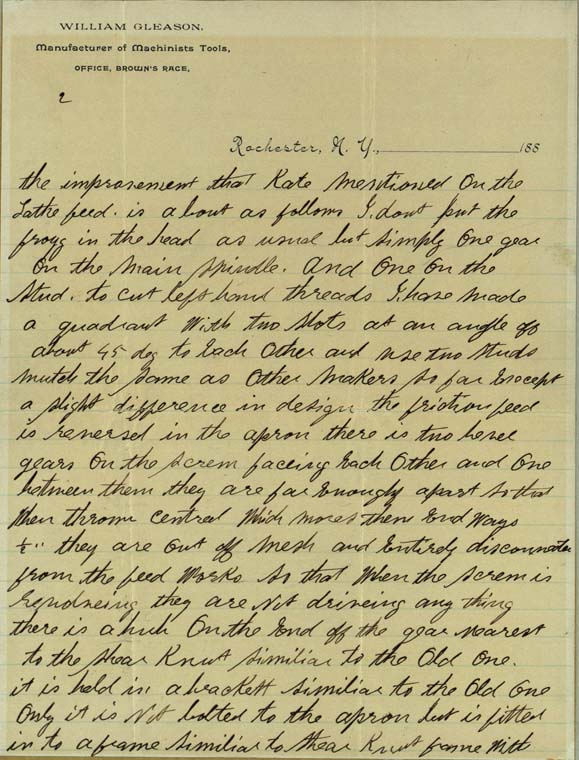 WILLIAM GLEASON,
Manufacturer of Machinists Tools,
OFFICE, BROWN'S RACE,
2
Rochester, N. Y., 188
the improvement that Kate mentioned On the
Lathe feed. is a bout as follows I. dont put the
frogg in the head as usual but simply One gear
On the main spindle. And One On the
Stud. to cut left hand threads I. have made
a quadrant With two slots at an angle off
about 45 deg to Each Other and use two studs
mutch the Same as Other Makers so far Except
a slight difference in design the friction feed
is reversed in the apron there is two bevel
gears On the screw faceing Each Other and One
between them they are far Enough apart so that
When thrown central Which moves them End Ways
½" they are out off mesh and Entirely disconnected
from the feed Works so that When the screw is
they are Not driveing any thing
there is a On the End off the gear nearest
to the Shear Knut similiar to the Old One.
it is held in a brackett similiar to the Old One
Only it is Not bolted to the apron but is fitted
in to a frame similiar to Shear Knut frame With